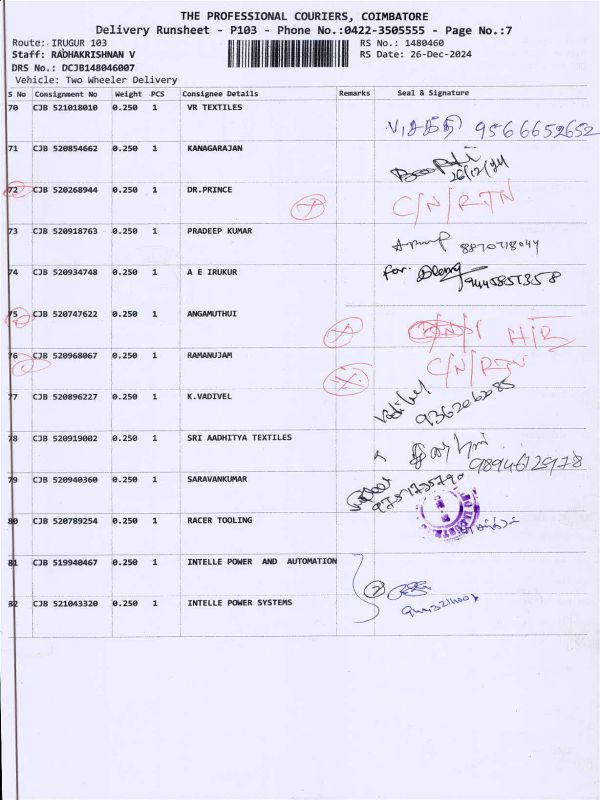 THE PROFESSIONAL COURIERS, COIMBATORE
Delivery Runsheet - P103 - Phone No.:0422-3505555 - Page No.:7
Route: IRUGUR 103 RS No.: 1480460
Staff: RADHAKRISHNAN V RS Date: 26-Dec-2024
DRS No.: DCJB148046007
Vehicle: Two Wheeler Delivery
S No Consignment No Weight PCS Consignee Details Remarks Seal & Signature
70 CJB 521018010 0.250 1 VR TEXTILES
9566652652
71 CJB 520854662 0.250 1 KANAGARAJAN
26/12/24
72 CJB 520268944 0.250 1 DR.PRINCE
C/N/RTN
73 CJB 520918763 0.250 1 PRADEEP KUMAR
8870718044
74 CJB 520934748 0.250 1 A E IRUKUR
for.
75 CJB 520747622 0.250 1 ANGAMUTHUI
76 CJB 520968067 0.250 1 RAMANUJAM
C/N/RTN
77 CJB 520896227 0.250 1 K.VADIVEL
9362062085
78 CJB 520919002 0.250 1 SRI AADHITYA TEXTILES
9894612978
79 CJB 520940360 0.250 1 SARAVANKUMAR
9751735790
80 CJB 520789254 0.250 1 RACER TOOLING
81 CJB 519940467 0.250 1 INTELLE POWER AND AUTOMATION
82 CJB 521043320 0.250 1 INTELLE POWER SYSTEMS